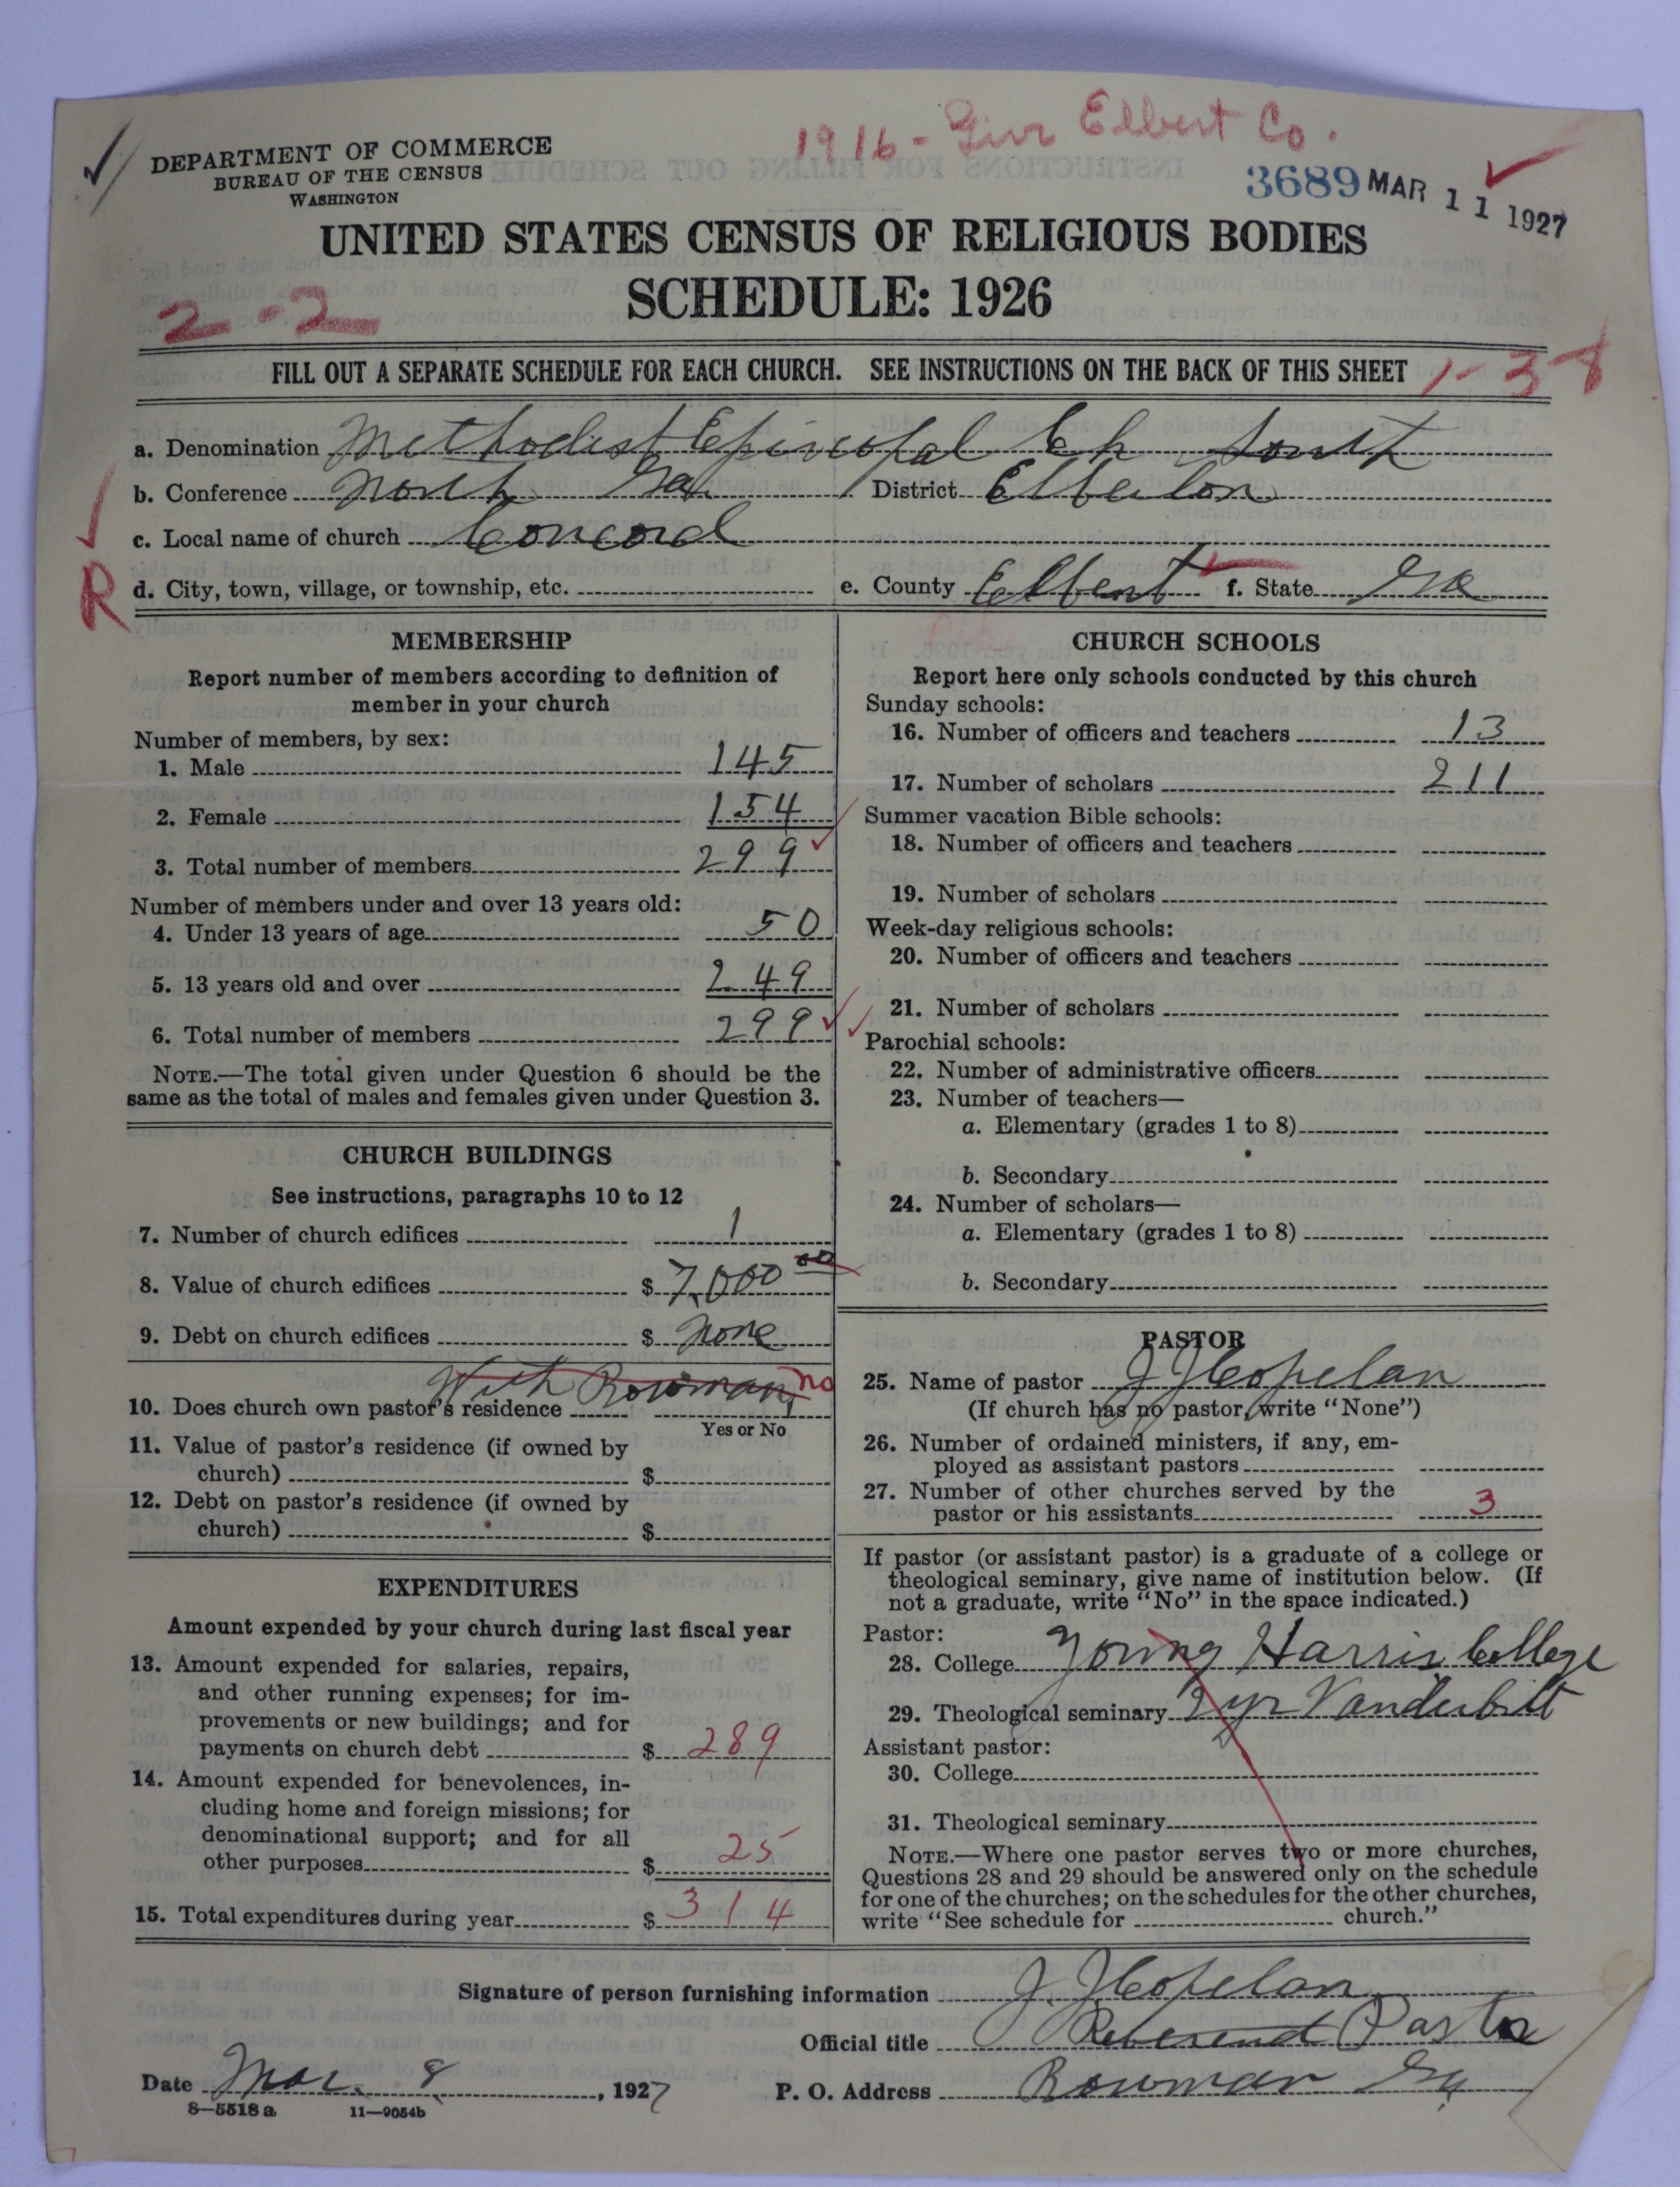 1916 - Giv Elbert Co.
DEPARTMENT OF COMMERCE
BUREAU OF THE CENSUS
WASHINGTON
3689 MAR 11 1927
UNITED STATES CENSUS OF RELIGIOUS BODIES
SCHEDULE: 1926
2-2
FILL OUT A SEPARATE SCHEDULE FOR EACH CHURCH. SEE INSTRUCTIONS ON THE BACK OF THIS SHEET
1-38
a. Denomination Methodist Episcopal Ch South
b. Conference North Ga. District Elberton
c. Local name of church Concord
R
d. City, town, village, or township, etc. e. County Elbert f. State Ga
MEMBERSHIP
Report number of members according to definition of
member in your church
Number of members, by sex:
1. Male 145
2. Female 154
3. Total number of members 299
Number of members under and over 13 years old:
4. Under 13 years of age 50
5. 13 years old and over 249
6. Total number of members 299
NOTE.—The total given under Question 6 should be the
same as the total of males and females given under Question 3.
CHURCH BUILDINGS
See instructions, paragraphs 10 to 12
7. Number of church edifices 1
8. Value of church edifices $ 7,000 00
9. Debt on church edifices $ None
With Bowman no
10. Does church own pastor's residence
Yes or No
11. Value of pastor's residence (if owned by
church) $
12. Debt on pastor's residence (if owned by
church) $
EXPENDITURES
Amount expended by your church during last fiscal year
13. Amount expended for salaries, repairs,
and other running expenses; for im-
provements or new buildings; and for
payments on church debt $ 289
14. Amount expended for benevolences, in-
cluding home and foreign missions; for
denominational support; and for all
other purposes $ 25
15. Total expenditures during year $ 314
CHURCH SCHOOLS
Report here only schools conducted by this church
Sunday schools:
16. Number of officers and teachers 13
17. Number of scholars 211
Summer vacation Bible schools:
18. Number of officers and teachers
19. Number of scholars
Week-day religious schools:
20. Number of officers and teachers
21. Number of scholars
Parochial schools:
22. Number of administrative officers
23. Number of teachers—
a. Elementary (grades 1 to 8)
b. Secondary
24. Number of scholars—
a. Elementary (grades 1 to 8)
b. Secondary
PASTOR
25. Name of pastor J J Copelan
(If church has no pastor, write "None")
26. Number of ordained ministers, if any, em-
ployed as assistant pastors
27. Number of other churches served by the
pastor or his assistants 3
If pastor (or assistant pastor) is a graduate of a college or
theological seminary, give name of institution below. (If
not a graduate, write "No" in the space indicated.)
Pastor:
28. College Young Harris College
29. Theological seminary 2 yr Vanderbilt
Assistant pastor:
30. College
31. Theological seminary
NOTE.—Where one pastor serves two or more churches,
Questions 28 and 29 should be answered only on the schedule
for one of the churches; on the schedules for the other churches,
write "See schedule for church."
Signature of person furnishing information J. J Copelan
Official title Reverend Pastor
Date Mar. 8, 1927 P. O. Address Bowman Ga
8—5518 a 11—9054b